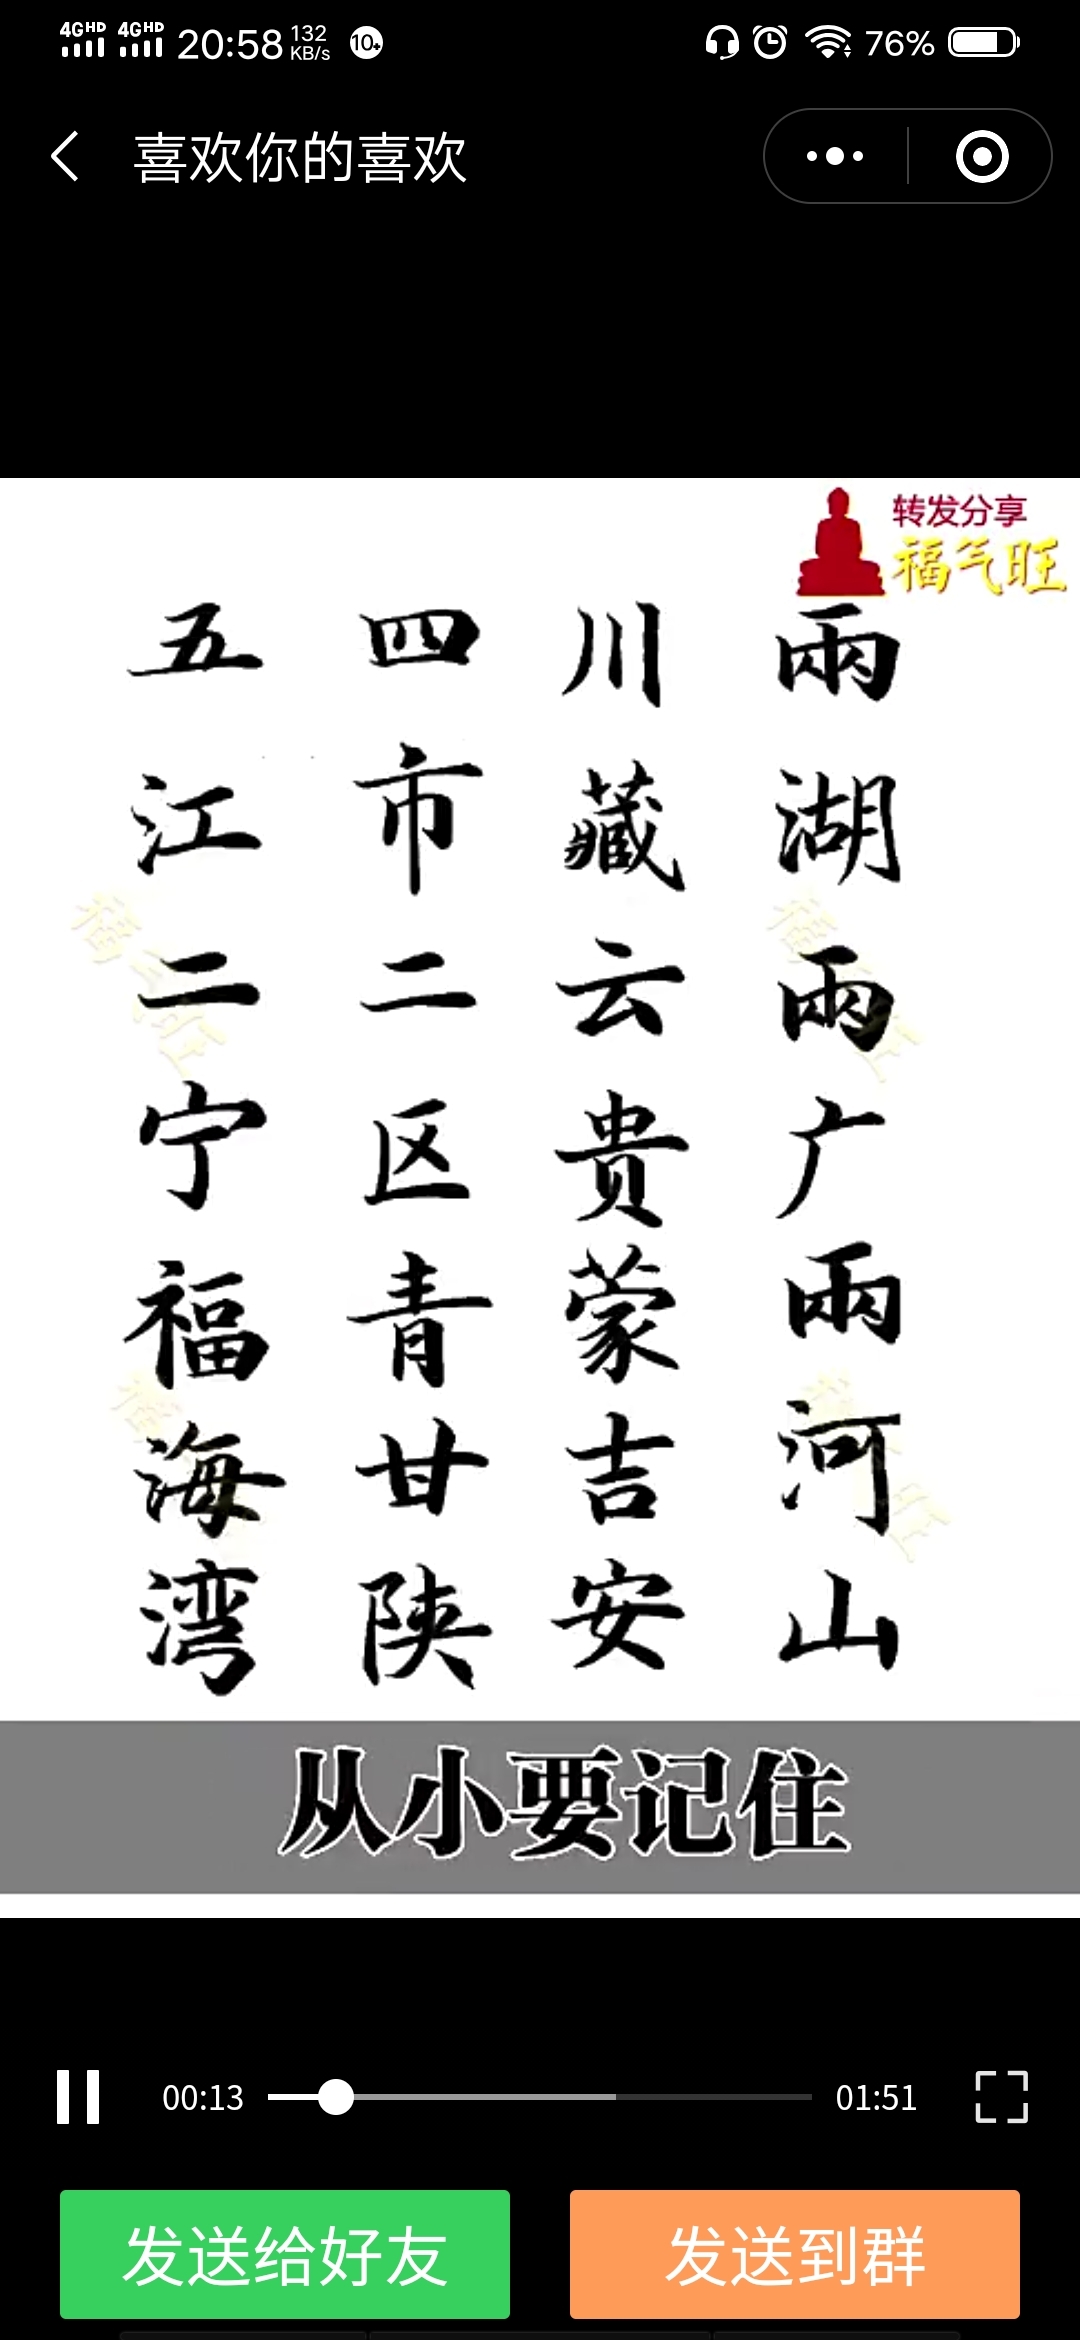 4GHD 4GHD 20:58 132 KB/s 10+ 76%
喜欢你的喜欢
转发分享
福气旺
兩湖兩广兩河山
川藏云贵蒙吉安
四市二区青甘陕
五江二宁福海湾
福气旺
福气旺
福气旺
福气旺
从小要记住
00:13 01:51
发送给好友 发送到群